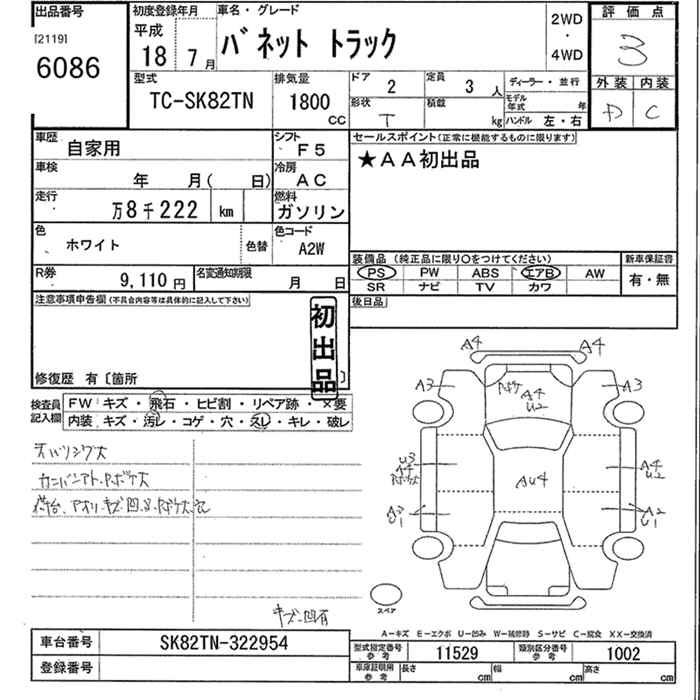 出品番号
[2119]
6086
初度登録年月
平成
18 7月
車名・グレード
バネット トラック
2WD
・
4WD
評価点
3
外装 内装
D C
型式
TC-SK82TN
排気量
1800
CC
ドア 2
定員 3人
形状 T
積載 kg
ディーラー・並行
モデル年式 年
ハンドル 左・右
車歴 自家用
シフト F5
車検 年 月( 日)
冷房 AC
走行 万8千222 km
燃料 ガソリン
色 ホワイト
色替
色コード A2W
R券 9,110円
名変通知期限 月 日
セールスポイント(正常に機能するものに限ります)
★AA初出品
装備品(純正品に限り○をつけてください)
PS PW ABS エアB AW
SR ナビ TV カワ
新車保証書
有・無
後日品
注意事項申告欄(不具合内容等は具体的に記入して下さい)
初出品
修復歴 有〔箇所 〕
検査員記入欄
FW キズ・飛石・ヒビ割・リペア跡・×要
内装 キズ・汚レ・コゲ・穴・スレ・キレ・破レ
キズ・凹有
A4 A4
A3 A3
A4
U2
U3
A4
AU4
A4
U2
A2
U1
スペア
A-キズ E-エクボ U-凹み W-補修跡 S-サビ C-腐食 XX-交換済
車台番号 SK82TN-322954
登録番号
型式指定番号 参考 11529
類別区分番号 参考 1002
車庫証明用 参考 長さ cm 幅 cm 高さ cm